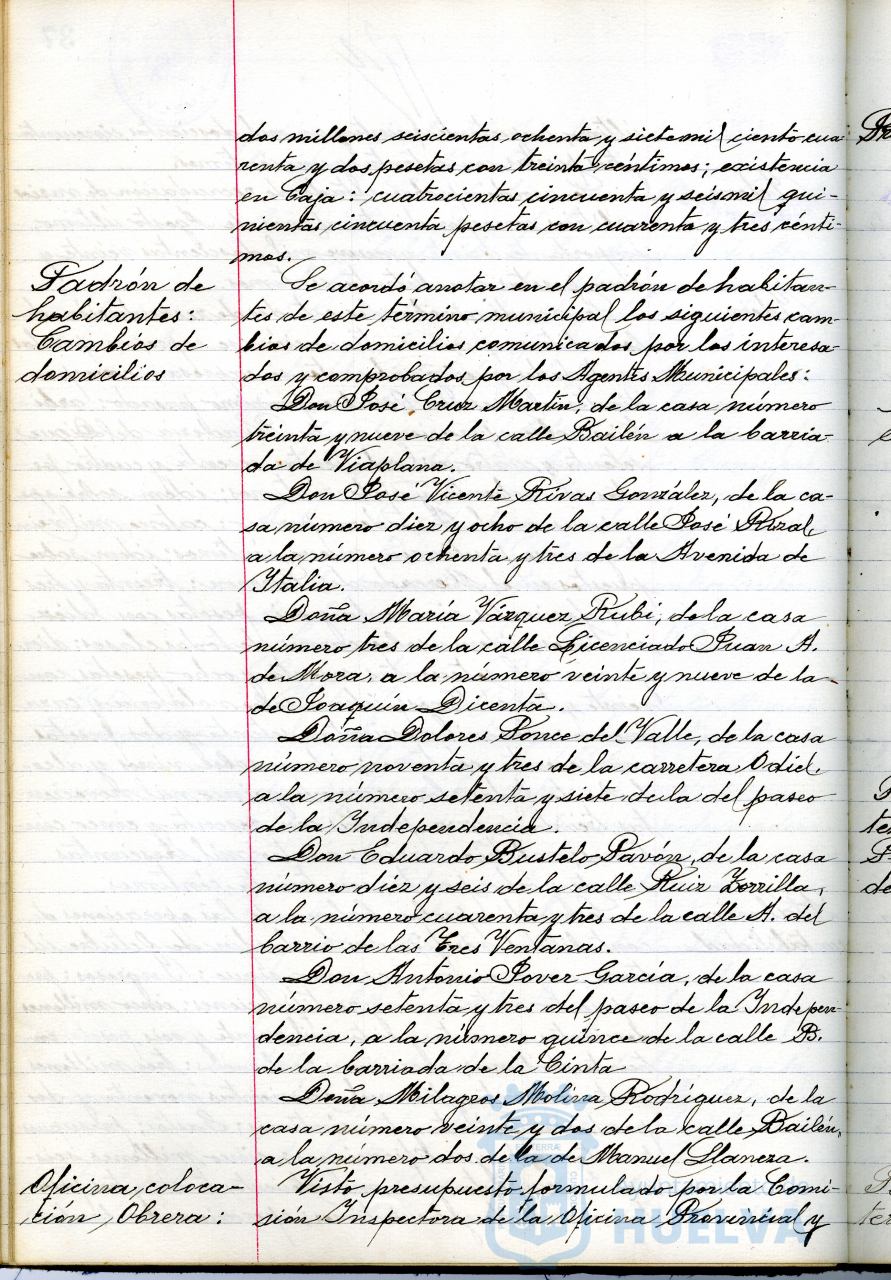 dos millones seiscientas ochenta y siete mil ciento cua-
renta y dos pesetas con treinta céntimos; existencia
en Caja: cuatrocientas cincuenta y seis mil qui-
nientas cincuenta pesetas con cuarenta y tres cénti-
mos.
Padrón de
habitantes:
Cambios de
domicilios
Se acordó anotar en el padrón de habitan-
tes de este término municipal los siguientes cam-
bios de domicilios comunicados por los interesa-
dos y comprobados por los Agentes Municipales:
Don José Cruz Martín, de la casa número
treinta y nueve de la calle Bailén a la barria-
da de Viaplana.
Don José Vicente Rivas González, de la ca-
sa número diez y ocho de la calle José Rizal,
a la número ochenta y tres de la Avenida de
Italia.
Doña María Vázquez Rubi, de la casa
número tres de la calle Licenciado Juan A.
de Mora, a la número veinte y nueve de la
de Joaquín Dicenta.
Doña Dolores Ponce del Valle, de la casa
número noventa y tres de la carretera Odiel,
a la número setenta y siete de la del paseo
de la Independencia.
Don Eduardo Bustelo Pavón, de la casa
número diéz y seis de la calle Ruiz Zorrilla,
a la número cuarenta y tres de la calle A. del
barrio de las Tres Ventanas.
Don Antonio Pover García, de la casa
número setenta y tres del paseo de la Indepen-
dencia, a la número quince de la calle B.
de la barriada de la Cinta
Doña Milagros Molina Rodríguez, de la
casa número veinte y dos de la calle Bailén,
a la número dos de la de Manuel Llaneza.
Oficina coloca-
ción Obrera:
Visto presupuesto formulado por la Comi-
sión Inspectora de la Oficina Provincial y
HUELVA